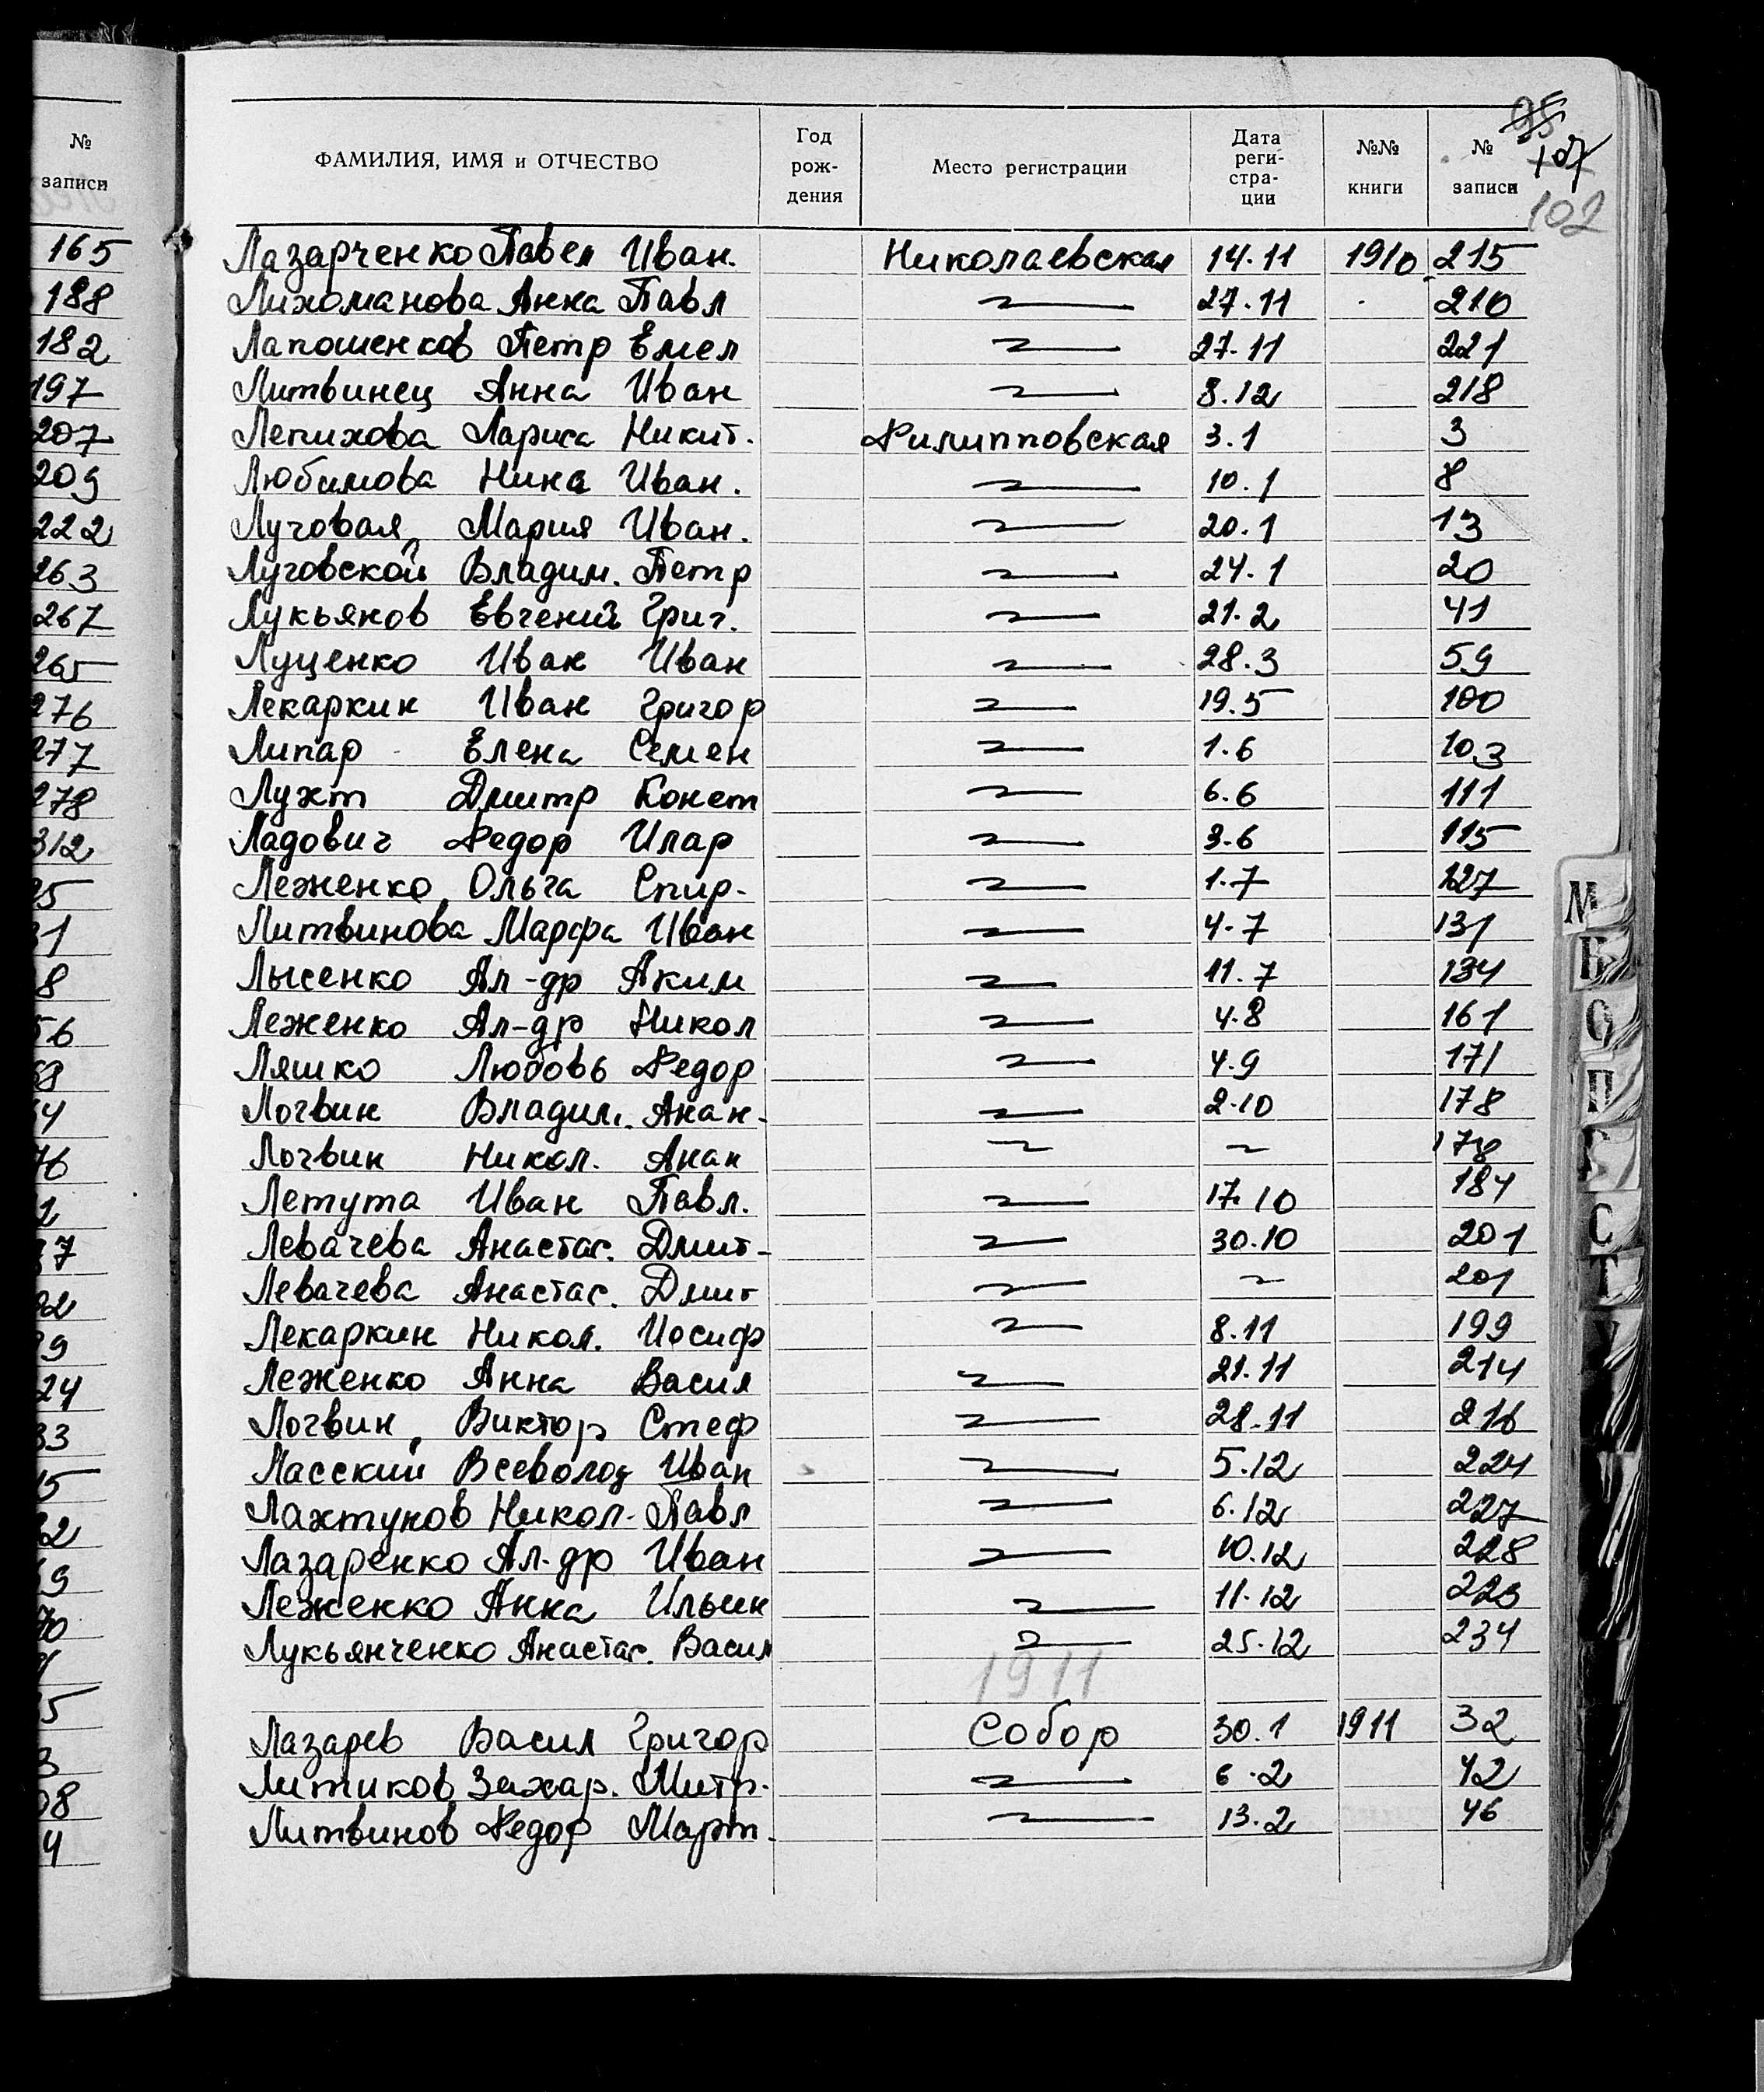 №
записи
165
188
182
197
207
209
222
263
267
265
276
277
278
312
95
107
102
ФАМИЛИЯ, ИМЯ и ОТЧЕСТВО Год рож- дения Место регистрации Дата реги- стра- ции №№ книги № записи
Лазарченко Павел Иван. Николаевская 14.11 1910 215
Лихоманова Анна Павл 27.11 210
Лапошенков Петр Емел 27.11 221
Литвинец Анна Иван 8.12 218
Лепихова Лариса Никит. Филипповская 3.1 3
Любимова Нина Иван. 10.1 8
Луговая Мария Иван. 20.1 13
Луговской Владим. Петр 24.1 20
Лукьянов Евгений Григ. 21.2 41
Луценко Иван Иван 28.3 59
Лекаркин Иван Григор 19.5 100
Липар Елена Семен 1.6 103
Лухт Дмитр Конст 6.6 111
Ладович Федор Илар 3.6 115
Леженко Ольга Спир. 1.7 127
Литвинова Марфа Иван 4.7 131
Лысенко Ал-др Аким 11.7 134
Леженко Ал-др Никол 4.8 161
Ляшко Любовь Федор 4.9 171
Логвин Владим. Анан. 2.10 178
Логвин Никол. Анан 178
Летута Иван Павл. 17.10 184
Левачева Анастас. Дмит. 30.10 201
Левачева Анастас. Дмит 201
Лекаркин Никол. Иосиф 8.11 199
Леженко Анна Васил 21.11 214
Логвин Виктор Стеф 28.11 216
Ласский Всеволод Иван 5.12 224
Лахтунов Никол. Павл 6.12 227
Лазаренко Ал-др Иван 10.12 228
Леженко Анна Ильин 11.12 223
Лукьянченко Анастас. Васил 25.12 234
1911
Лазарев Васил Григор Собор 30.1 1911 32
Литиков Захар. Митр. 6.2 42
Литвинов Федор Март. 13.2 46
М
О
П
С
Т
У